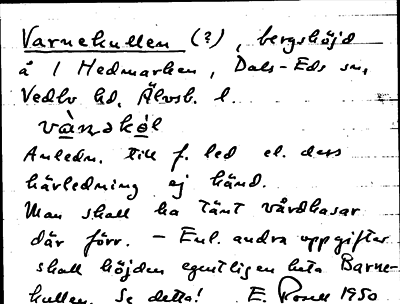 Varnekullen (?), bergshöjd
å 1 Hedmarken, Dals-Eds sn,
Vedbo hd, Älvsb. l.
vànəkòl
Anledn. till f. led el. dess
härledning ej känd.
Man skall ha tänt vårdkasar
där förr. - Enl. andra uppgifter
skall höjden egentligen heta Barne-
kullen. Se detta! E. 1950